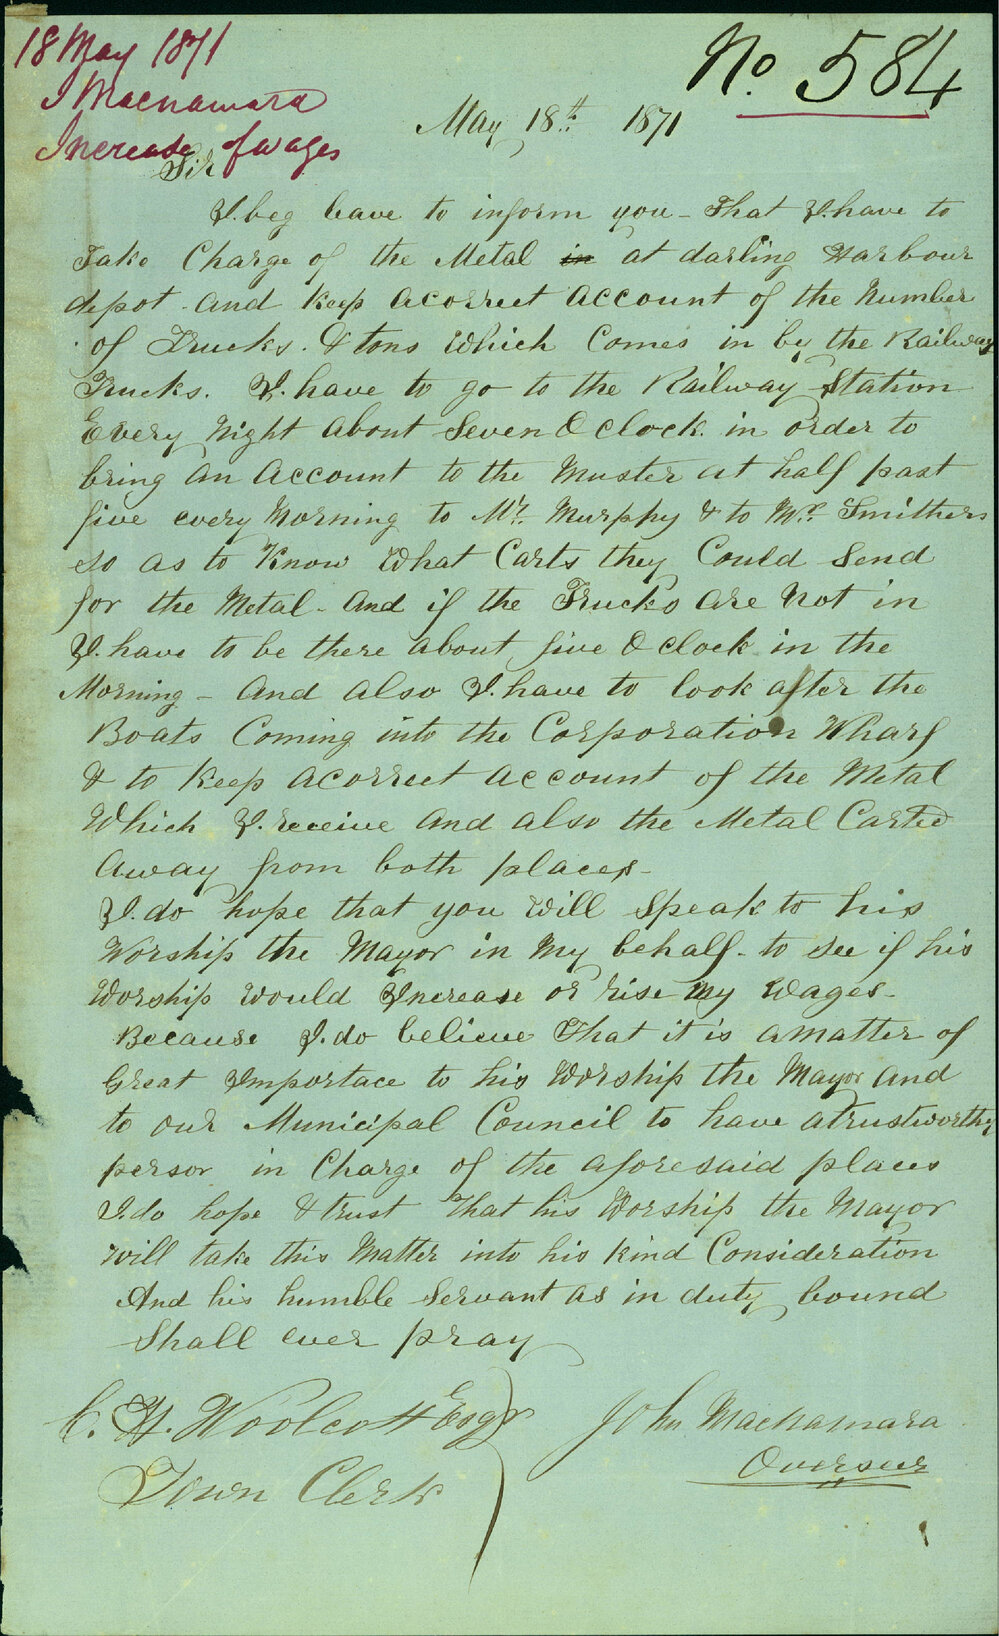 18 May 1871
J Macnamara
Increase of wages
No. 584
May 18th 1871
Sir
I. beg leave to inform you - That I. have to
Take Charge of the Metal in at darling Harbour
depot - and keep acorrect account of the Number
of Trucks. & tons Which Comes in by the Railway
Trucks. I. have to go to the Railway Station
Every Night about Seven O clock. in order to
bring an account to the Muster at half past
five every Morning to Mr. Murphy & to Mr. Smithers
so as to Know What Carts they Could Send
for the Metal - and if the Trucks are Not in
I. have to be there about five O clock in the
Morning - and also I. have to look after the
Boats Coming into the Corporation Wharf
& to keep acorrect account of the Metal
Which I. receive and also the Metal Carted
away from both places -
I. do hope that you Will Speak to his
Worship the Mayor in My behalf - to see if his
Worship Would Increase or rise My Wages -
Because I. do believe That it is amatter of
Great Importace to his Worship the Mayor and
to our Municipal Council to have atrustworthy
person in Charge of the aforesaid places
I. do hope & trust That his Worship the Mayor
Will take this Matter into his kind Consideration
And his humble Servant as in duty bound
Shall ever pray
C. H. Woolcott Esqr
Town Clerk
John Macnamara
Overseer